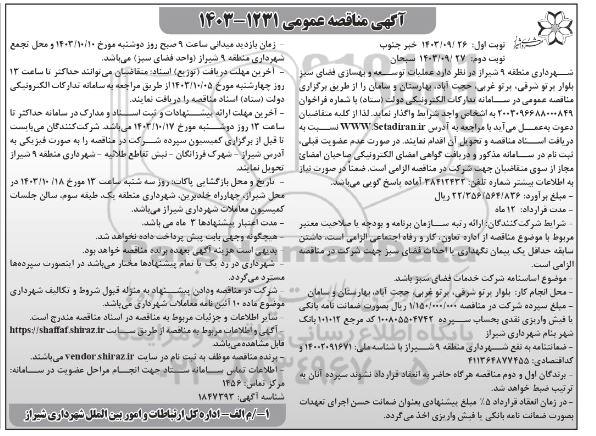 آگهی مناقصه عمومی ۱۲۳۱-۱۴۰۳
نوبت اول: ۲۶ /۱۴۰۳/۰۹ خبر جنوب
نوبت دوم: ۲۷ /۱۴۰۳/۰۹ سبحان
شهرداری منطقه ۹ شیراز در نظر دارد عملیات توسعه و بهسازی فضای سبز
بلوار پرتو شرقی، پرتو غربی، حجت آباد، بهارستان و سامان را از طریق برگزاری
مناقصه عمومی در سامانه تدارکات الکترونیکی دولت (ستاد) با شماره فراخوان
۲۰۰۳۰۹۶۶۸۸۰۰۰۸۴۹ به اشخاص واجد شرایط واگذار نماید. لذا از کلیه متقاضیان
دعوت به‌عمل می‌آید با مراجعه به آدرس WWW.Setadiran.ir نسبت به
دریافت اسناد مناقصه و تحویل آن اقدام نمایند. در صورت عدم عضویت قبلی،
ثبت نام در سامانه مذکور و دریافت گواهی امضای الکترونیکی صاحبان امضای
مجاز از سوی متقاضیان جهت شرکت در مناقصه الزامی است. ضمنا در صورت نیاز
به اطلاعات بیشتر شماره تلفن: ۳۸۴۱۲۴۳۲ آماده پاسخ گویی می‌باشد.
- مبلغ برآورد: ۲۲/۳۵۶/۵۶۴/۸۳۶ ریال
- مدت قرارداد: ۱۲ماه
- شرایط شرکت‌کنندگان: ارائه رتبه سازمان برنامه و بودجه یا صلاحیت معتبر
مربوط با موضوع مناقصه از اداره تعاون، کار و رفاه اجتماعی الزامی است. داشتن
سابقه حداقل یک پیمان نگهداری یا احداث فضای سبز جهت شرکت در مناقصه
الزامی است.
- موضوع اساسنامه شرکت خدمات فضای سبز باشد.
- محل انجام کار: بلوار پرتو شرقی، پرتو غربی، حجت آباد، بهارستان و سامان
- مبلغ سپرده شرکت در مناقصه ۱/۱۵۰/۰۰۰/۰۰۰ ریال بصورت ضمانت نامه بانکی
یا فیش واریزی نقدی بحساب سپرده ۱۰۰۸۰۵۵۰۴۷۴۲ کد مرجع ۱۰۱۰۱۲ بانک
شهر بنام شهرداری شیراز
- ضمانتنامه به نفع شهرداری منطقه ۹ شیراز با شناسه ملی: ۱۴۰۰۲۰۹۱۶۷۱ و
کداقتصادی: ۴۱۱۳۶۴۸۷۷۴۵۵
- برندگان اول و دوم مناقصه هرگاه حاضر به انعقاد قرارداد نشوند سپرده آنان به
ترتیب ضبط خواهد شد.
- در زمان انعقاد قرارداد ۵٪ مبلغ پیشنهادی بعنوان ضمانت حسن اجرای تعهدات
بصورت ضمانت نامه بانکی یا فیش واریزی اخذ می‌گردد.
- زمان بازدید میدانی ساعت ۹ صبح روز دوشنبه مورخ ۱۴۰۳/۱۰/۱۰ و محل تجمع
شهرداری منطقه ۹ شیراز (واحد فضای سبز) می‌باشد.
- آخرین مهلت دریافت (توزیع) اسناد: متقاضیان می‌توانند حداکثر تا ساعت ۱۳
روز چهارشنبه مورخ ۱۴۰۳/۱۰/۰۵ از طریق مراجعه به سامانه تدارکات الکترونیکی
دولت (ستاد) اسناد مناقصه را دریافت نمایند.
- آخرین مهلت ارائه پیشنهادات و ثبت اسناد و مدارک در سامانه حداکثر تا
ساعت ۱۳ روز دوشنبه مورخ ۱۴۰۳/۱۰/۱۷ می‌باشد. شرکت‌کنندگان می‌بایست
تا قبل از برگزاری کمیسیون سپرده شرکت در مناقصه را به صورت فیزیکی به
آدرس شیراز - شهرک فرزانگان - نبش تقاطع طلائیه - شهرداری منطقه ۹ شیراز
تحویل نمایند.
- تاریخ و محل بازگشایی پاکات: روز سه شنبه ساعت ۱۳ مورخ ۱۸ /۱۴۰۳/۱۰ در
محل شیراز، چهارراه خلدبرین، شهرداری منطقه یک، طبقه سوم، سالن جلسات
کمیسیون معاملات شهرداری شیراز می‌باشد.
- مدت اعتبار پیشنهادها ۳ ماه می باشد.
- هیچگونه وجهی بابت پیش پرداخت داده نخواهد شد.
- بدیهی است هزینه آگهی بعهده برنده مناقصه خواهد بود.
- شهرداری در رد یک یا تمام پیشنهادها مختار می‌باشد در اینصورت سپرده‌ها
مسترد می‌گردد.
- شرکت در مناقصه ودادن پیشنهاد به منزله قبول شروط و تکالیف شهرداری
موضوع ماده ۱۰ آئین نامه معاملات شهرداری می‌باشد.
- سایر اطلاعات و جزئیات مربوط به مناقصه در اسناد مناقصه مندرج است.
- آگهی و اطلاعات مربوط به مناقصه از طریق سایت https://shaffaf.shiraz.ir
قابل مشاهده می‌باشد.
- برنده مناقصه موظف به ثبت نام در سایت vendor.shiraz.ir می‌باشند.
- اطلاعات تماس سامانه ستاد جهت انجام مراحل عضویت در سامانه:
مرکز تماس: ۱۴۵۶
شناسه آگهی: ۱۸۴۷۳۹۳
۱-/م الف- اداره کل ارتباطات و امور بین الملل شهرداری شیراز